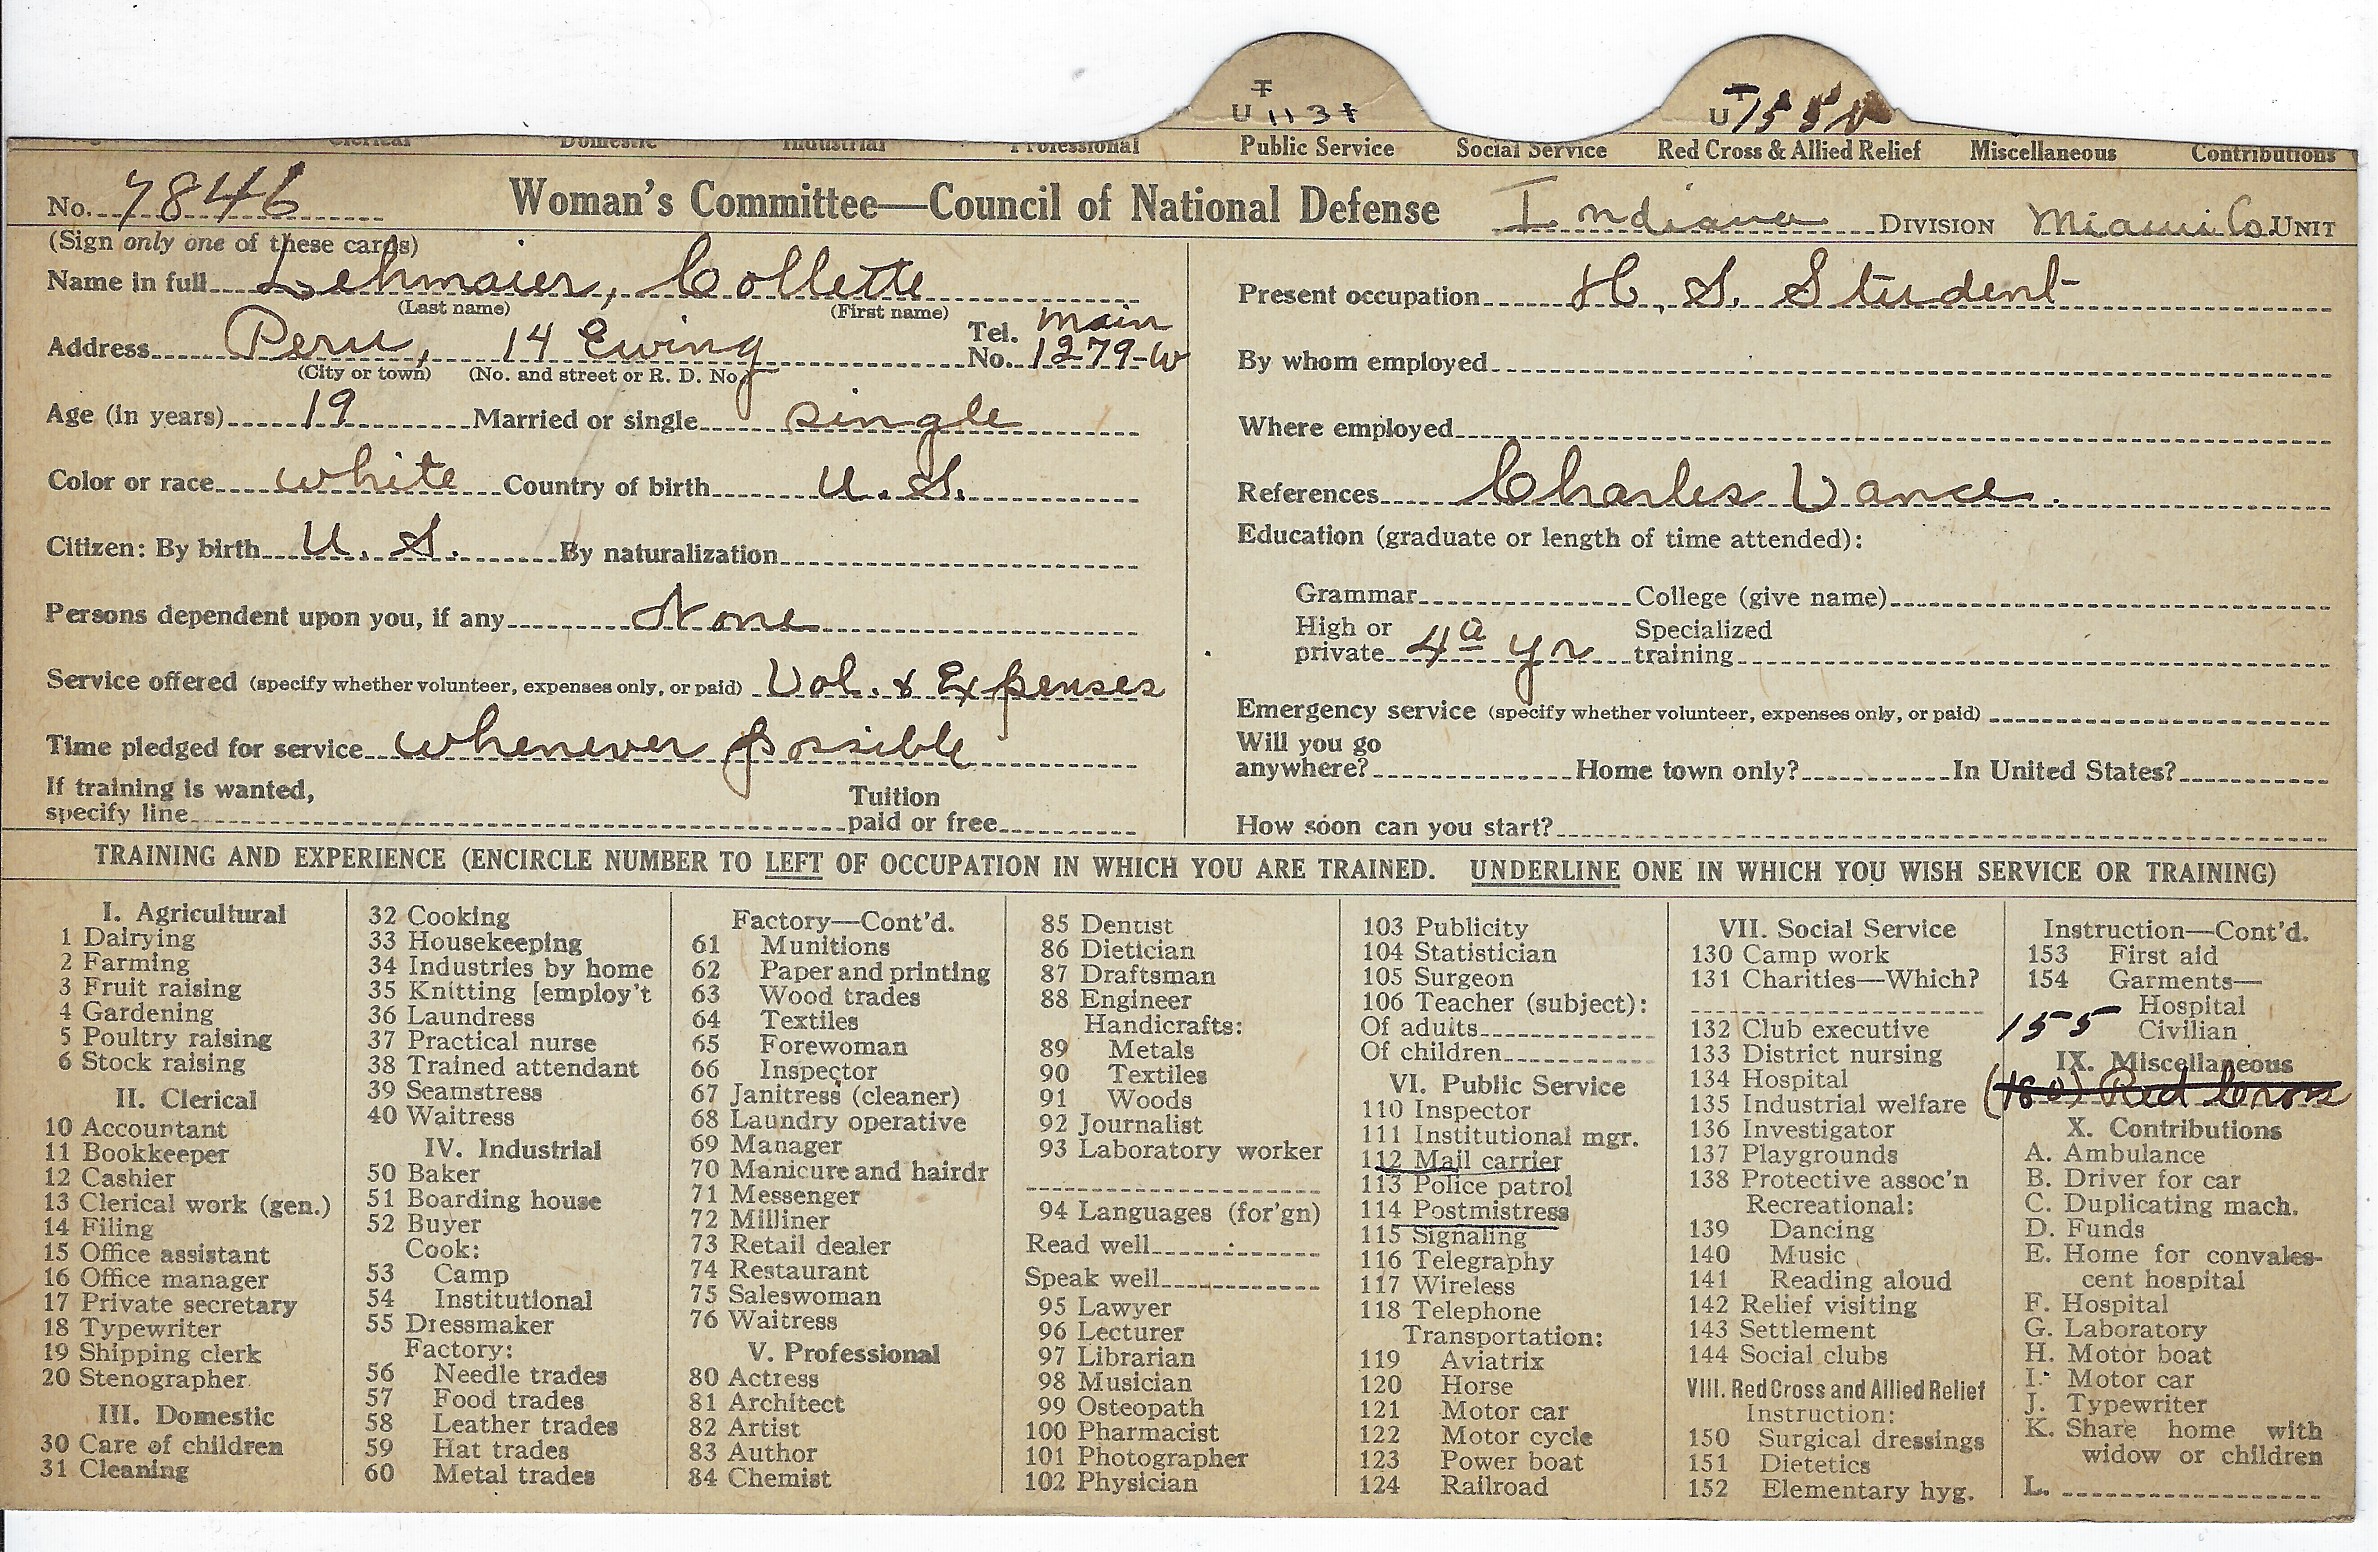 T
U 113
T
U 155
Clerical Domestic Industrial Professional Public Service Social Service Red Cross & Allied Relief Miscellaneous Contributions
No. 7846 Woman's Committee—Council of National Defense Indiana DIVISION Miami Co. UNIT
(Sign only one of these cards)
Name in full Lehmaier, Collette
(Last name) (First name)
Address Peru, 14 Ewing Tel. No. Main 1279-W
(City or town) (No. and street or R. D. No.)
Age (in years) 19 Married or single single
Color or race white Country of birth U. S.
Citizen: By birth U. S. By naturalization
Persons dependent upon you, if any None
Service offered (specify whether volunteer, expenses only, or paid) Vol. & Expenses
Time pledged for service whenever possible
If training is wanted,
specify line Tuition paid or free
Present occupation H. S. Student
By whom employed
Where employed
References Charles Vance.
Education (graduate or length of time attended):
Grammar College (give name)
High or private 4a yr Specialized training
Emergency service (specify whether volunteer, expenses only, or paid)
Will you go
anywhere? Home town only? In United States?
How soon can you start?
TRAINING AND EXPERIENCE (ENCIRCLE NUMBER TO LEFT OF OCCUPATION IN WHICH YOU ARE TRAINED. UNDERLINE ONE IN WHICH YOU WISH SERVICE OR TRAINING)
I. Agricultural
1 Dairying
2 Farming
3 Fruit raising
4 Gardening
5 Poultry raising
6 Stock raising
II. Clerical
10 Accountant
11 Bookkeeper
12 Cashier
13 Clerical work (gen.)
14 Filing
15 Office assistant
16 Office manager
17 Private secretary
18 Typewriter
19 Shipping clerk
20 Stenographer
III. Domestic
30 Care of children
31 Cleaning
32 Cooking
33 Housekeeping
34 Industries by home
35 Knitting [employ't
36 Laundress
37 Practical nurse
38 Trained attendant
39 Seamstress
40 Waitress
IV. Industrial
50 Baker
51 Boarding house
52 Buyer
Cook:
53 Camp
54 Institutional
55 Dressmaker
Factory:
56 Needle trades
57 Food trades
58 Leather trades
59 Hat trades
60 Metal trades
Factory—Cont'd.
61 Munitions
62 Paper and printing
63 Wood trades
64 Textiles
65 Forewoman
66 Inspector
67 Janitress (cleaner)
68 Laundry operative
69 Manager
70 Manicure and hairdr
71 Messenger
72 Milliner
73 Retail dealer
74 Restaurant
75 Saleswoman
76 Waitress
V. Professional
80 Actress
81 Architect
82 Artist
83 Author
84 Chemist
85 Dentist
86 Dietician
87 Draftsman
88 Engineer
Handicrafts:
89 Metals
90 Textiles
91 Woods
92 Journalist
93 Laboratory worker
94 Languages (for'gn)
Read well
Speak well
95 Lawyer
96 Lecturer
97 Librarian
98 Musician
99 Osteopath
100 Pharmacist
101 Photographer
102 Physician
103 Publicity
104 Statistician
105 Surgeon
106 Teacher (subject):
Of adults
Of children
VI. Public Service
110 Inspector
111 Institutional mgr.
112 Mail carrier
113 Police patrol
114 Postmistress
115 Signaling
116 Telegraphy
117 Wireless
118 Telephone
Transportation:
119 Aviatrix
120 Horse
121 Motor car
122 Motor cycle
123 Power boat
124 Railroad
VII. Social Service
130 Camp work
131 Charities—Which?
132 Club executive
133 District nursing
134 Hospital
135 Industrial welfare
136 Investigator
137 Playgrounds
138 Protective assoc'n
Recreational:
139 Dancing
140 Music
141 Reading aloud
142 Relief visiting
143 Settlement
144 Social clubs
VIII. Red Cross and Allied Relief
Instruction:
150 Surgical dressings
151 Dietetics
152 Elementary hyg.
Instruction—Cont'd.
153 First aid
154 Garments—
Hospital
155 Civilian
IX. Miscellaneous
(160) Red Cross
X. Contributions
A. Ambulance
B. Driver for car
C. Duplicating mach.
D. Funds
E. Home for convales-
cent hospital
F. Hospital
G. Laboratory
H. Motor boat
I. Motor car
J. Typewriter
K. Share home with
widow or children
L.